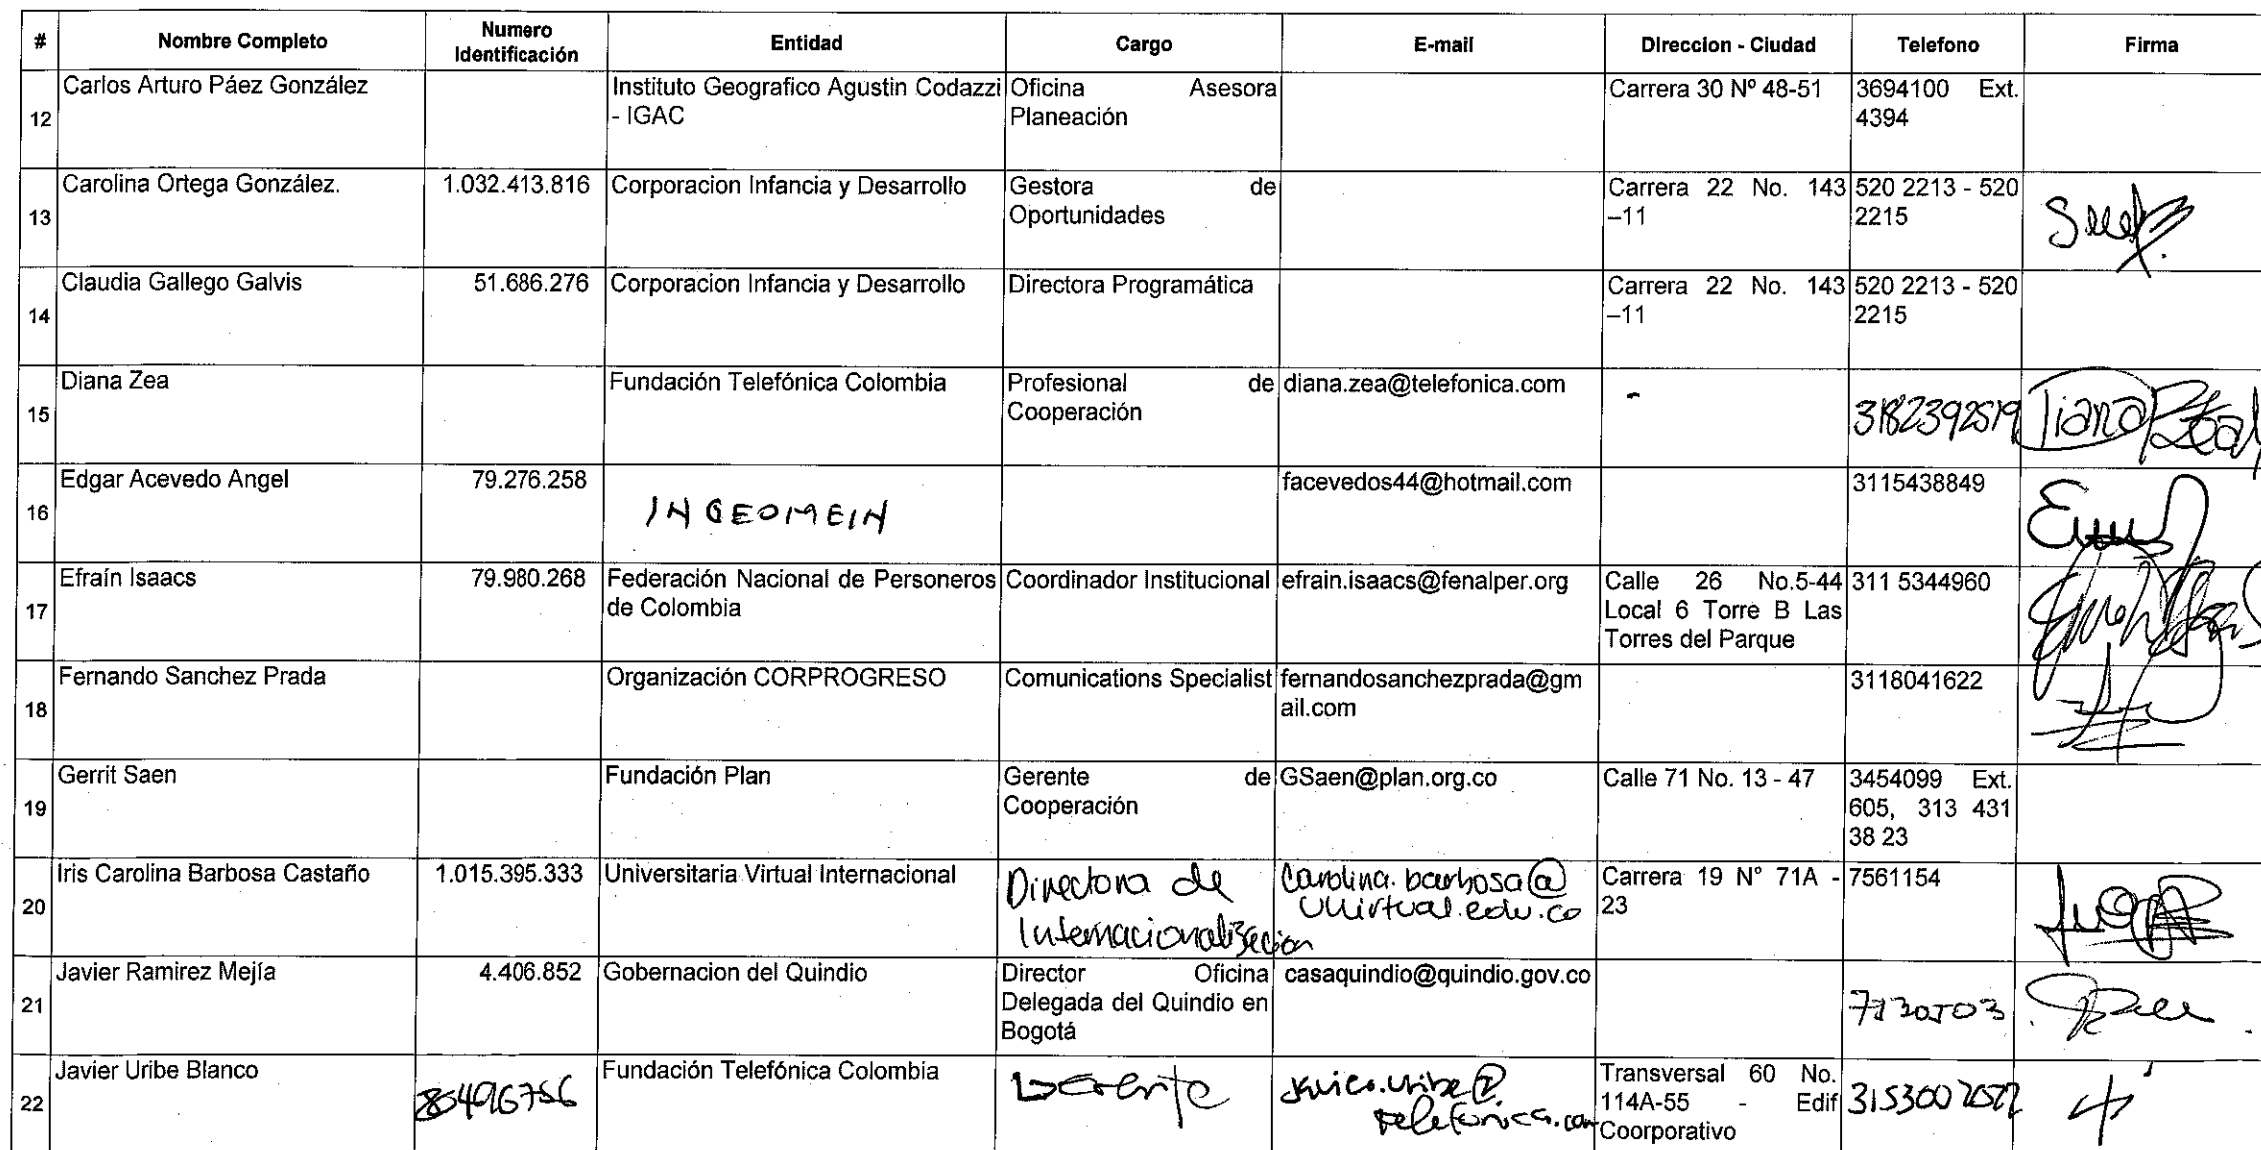 # Nombre Completo Numero Identificación Entidad Cargo E-mail Direccion - Ciudad Telefono Firma
12 Carlos Arturo Páez González Instituto Geografico Agustin Codazzi - IGAC Oficina Asesora Planeación Carrera 30 Nº 48-51 3694100 Ext. 4394
13 Carolina Ortega González. 1.032.413.816 Corporacion Infancia y Desarrollo Gestora de Oportunidades Carrera 22 No. 143 –11 520 2213 - 520 2215
14 Claudia Gallego Galvis 51.686.276 Corporacion Infancia y Desarrollo Directora Programática Carrera 22 No. 143 –11 520 2213 - 520 2215
15 Diana Zea Fundación Telefónica Colombia Profesional de Cooperación diana.zea@telefonica.com - 3182392519
16 Edgar Acevedo Angel 79.276.258 INGEOMEIN facevedos44@hotmail.com 3115438849
17 Efraín Isaacs 79.980.268 Federación Nacional de Personeros de Colombia Coordinador Institucional efrain.isaacs@fenalper.org Calle 26 No.5-44 Local 6 Torre B Las Torres del Parque 311 5344960
18 Fernando Sanchez Prada Organización CORPROGRESO Comunications Specialist fernandosanchezprada@gmail.com 3118041622
19 Gerrit Saen Fundación Plan Gerente de Cooperación GSaen@plan.org.co Calle 71 No. 13 - 47 3454099 Ext. 605, 313 431 38 23
20 Iris Carolina Barbosa Castaño 1.015.395.333 Universitaria Virtual Internacional Directora de Internacionalización carolina.barbosa@uvirtual.edu.co Carrera 19 N° 71A - 23 7561154
21 Javier Ramirez Mejía 4.406.852 Gobernacion del Quindio Director Oficina Delegada del Quindio en Bogotá casaquindio@quindio.gov.co
22 Javier Uribe Blanco Fundación Telefónica Colombia Gerente Transversal 60 No. 114A-55 - Edif Coorporativo